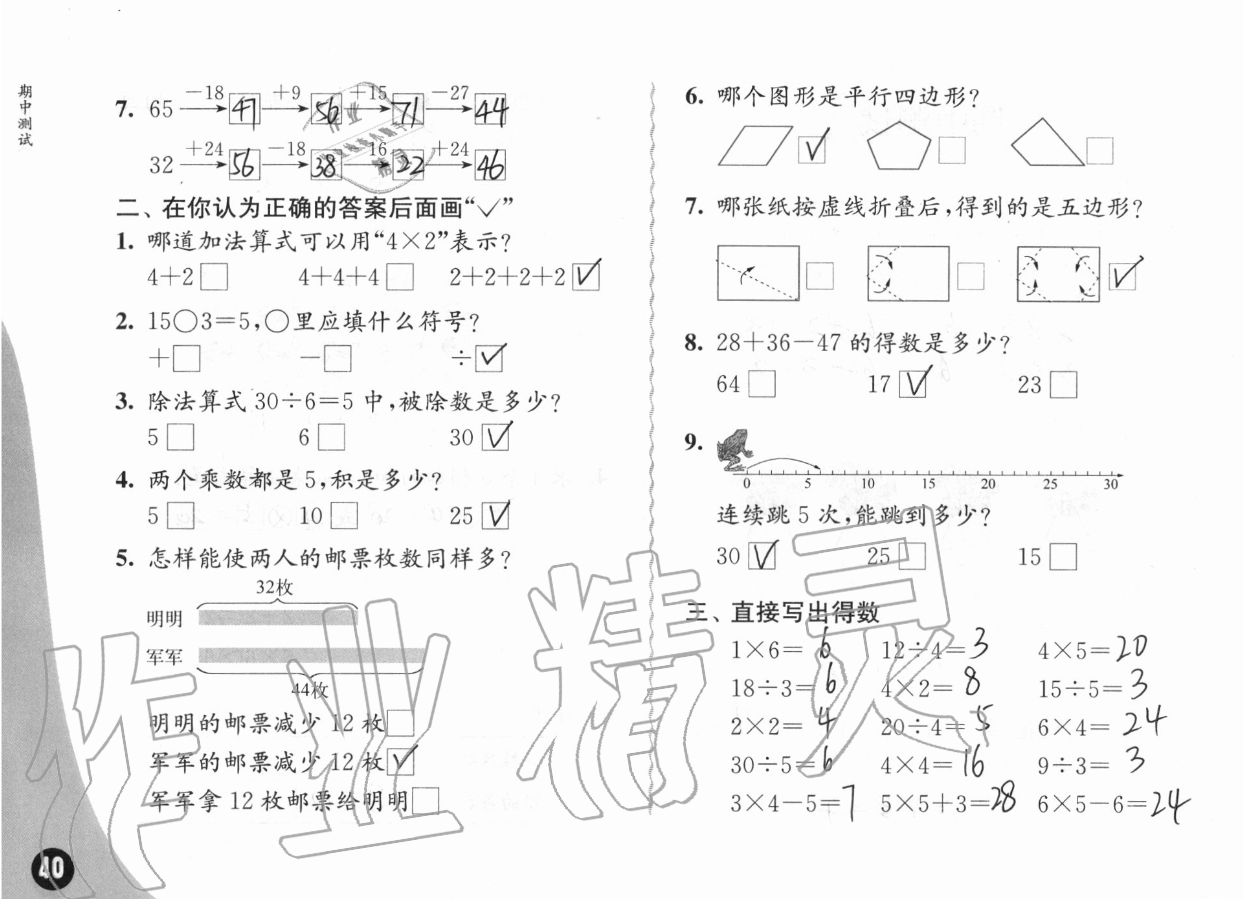 期中测试
7. 65 −18 47 +9 56 +15 71 −27 44
32 +24 56 −18 38 16 22 +24 46
二、在你认为正确的答案后面画“✓”
1. 哪道加法算式可以用“4×2”表示?
4+2□ 4+4+4□ 2+2+2+2☑
2. 15○3=5,○里应填什么符号?
+□ −□ ÷☑
3. 除法算式 30÷6=5 中,被除数是多少?
5□ 6□ 30☑
4. 两个乘数都是 5,积是多少?
5□ 10□ 25☑
5. 怎样能使两人的邮票枚数同样多?
32枚
明明
军军
44枚
明明的邮票减少 12 枚□
军军的邮票减少 12 枚☑
军军拿 12 枚邮票给明明□
40
6. 哪个图形是平行四边形?
☑ □ □
7. 哪张纸按虚线折叠后,得到的是五边形?
□ □ ☑
8. 28+36−47 的得数是多少?
64□ 17☑ 23□
9.
0 5 10 15 20 25 30
连续跳 5 次,能跳到多少?
30☑ 25□ 15□
三、直接写出得数
1×6=6 12÷4=3 4×5=20
18÷3=6 4×2=8 15÷5=3
2×2=4 20÷4=5 6×4=24
30÷5=6 4×4=16 9÷3=3
3×4−5=7 5×5+3=28 6×5−6=24
作业精灵